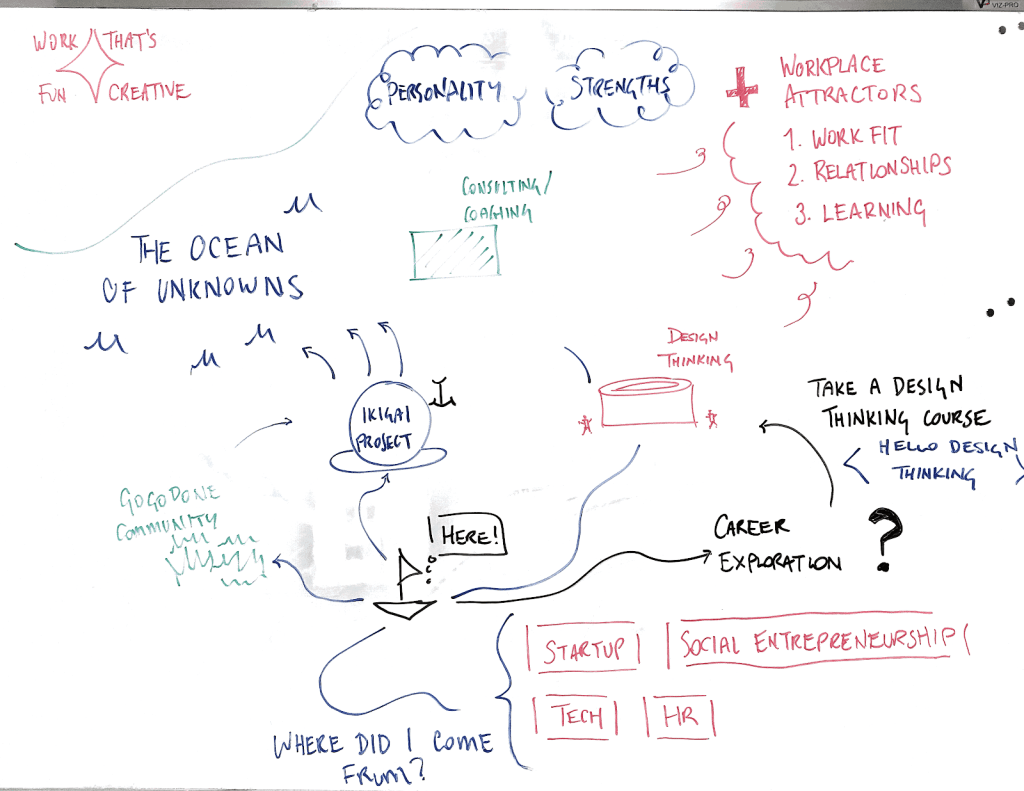 VIZ-PRO
WORK THAT'S
FUN CREATIVE
PERSONALITY
STRENGTHS
WORKPLACE
ATTRACTORS
1. WORK FIT
2. RELATIONSHIPS
3. LEARNING
CONSULTING/
COACHING
THE OCEAN
OF UNKNOWNS
DESIGN
THINKING
IKIGAI
PROJECT
TAKE A DESIGN
THINKING COURSE
HELLO DESIGN
THINKING
GOGODONE
COMMUNITY
HERE!
CAREER
EXPLORATION ?
STARTUP
SOCIAL ENTREPRENEURSHIP
TECH
HR
WHERE DID I COME
FROM?